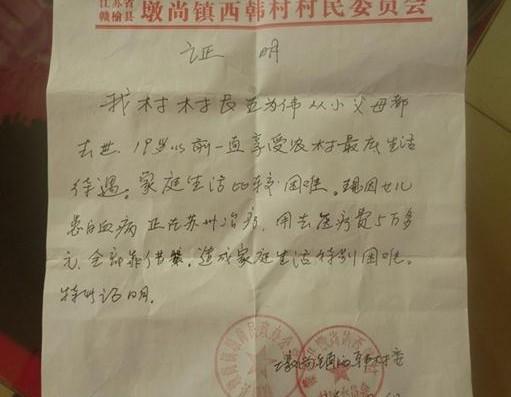 江苏省
赣榆县 墩尚镇西韩村村民委员会
证 明
我村村民 为伟从小父母都
去世，19岁以前一直享受农村最底生活
待遇。家庭生活比较困难。现因女儿
患白血病正在苏州治病，用去医疗费5万多
元，全部靠借贷，造成家庭生活特别困难。
特此证明。
墩尚镇西韩村委